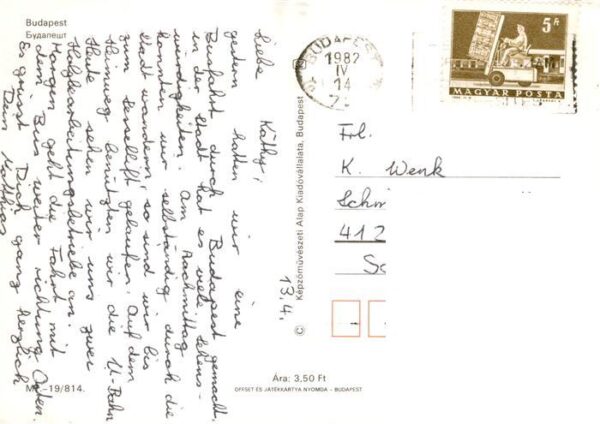 Budapest
Будапешт
Liebe Käthy!
gestern hatten wir eine
Busfahrt durch Budapest gemacht.
in der Stadt hat es viele Sehens-
würdigkeiten. Am Nachmittag
konnten wir selbständig durch die
Stadt wandern, so sind wir bis
zum Sessellift gelaufen. Auf dem
Heimweg benützten wir die U-Bahn
Heute sehen wir uns zwei
Holzbearbeitungsbetriebe an.
Morgen geht die Fahrt mit
dem Bus weiter richtung Osten.
Es grüsst Dich ganz herzlich
Dein Matthias
13.4.
-19/814.
© Képzőművészeti Alap Kiadóvállalata, Budapest
Ára: 3,50 Ft
OFFSET ÉS JÁTÉKKÁRTYA NYOMDA – BUDAPEST
BUDAPEST
1982
IV
14
5 Ft
MAGYAR POSTA
Frl.
K. Wenk
Schm
412